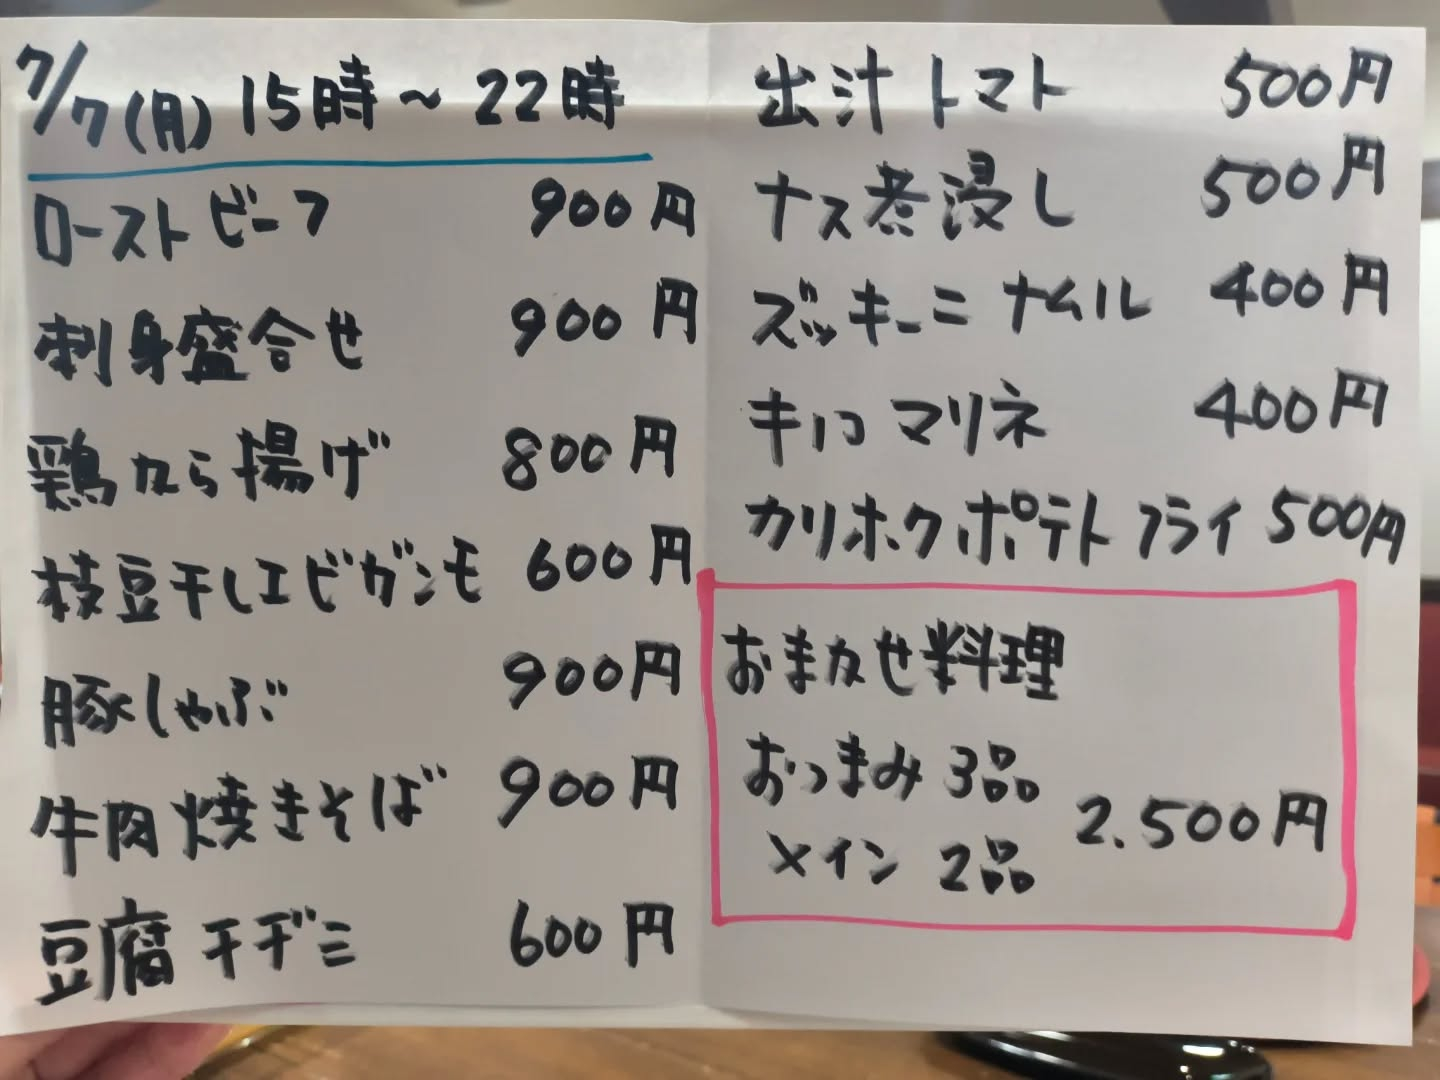 7/7(月) 15時～22時
ローストビーフ 900円
刺身盛合せ 900円
鶏から揚げ 800円
枝豆干しエビガンモ 600円
豚しゃぶ 900円
牛肉焼きそば 900円
豆腐チヂミ 600円
出汁トマト 500円
ナス煮浸し 500円
ズッキーニナムル 400円
キノコマリネ 400円
カリホクポテトフライ 500円
おまかせ料理
おつまみ3品
メイン2品 2.500円